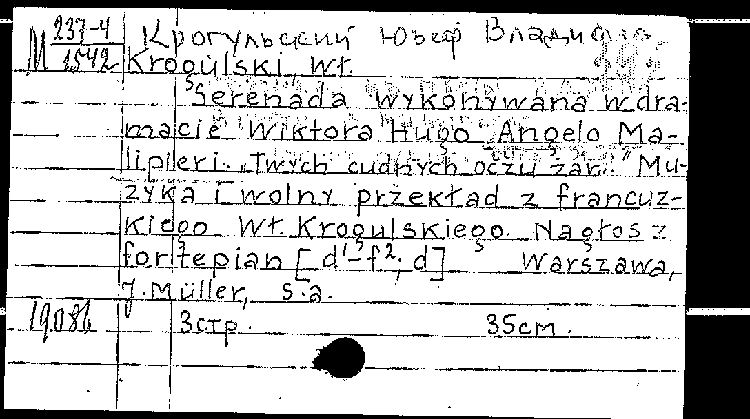 М 237-4 Крогульский Юзеф Владислав
1542 Krogulski Wł.
Serenada wykonywana w dra-
macie Wiktora Hugo "Angelo Ma-
lipieri. "Twych cudnych oczu żar.." Mu-
zyka i wolny przekład z francuz-
kiego Wł. Krogulskiego. Na głos z
fortepian [d¹-f²; d] Warszawa,
J. Müller, s.a.
19086 3 стр. 35 см.